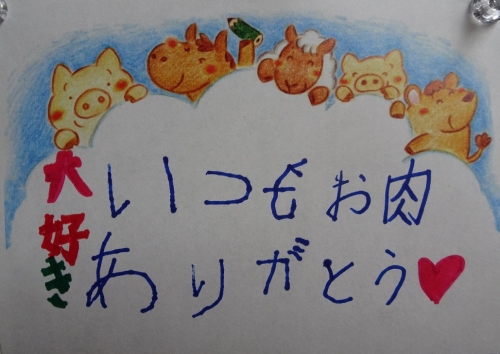 大好き
いつもお肉
ありがとう♥